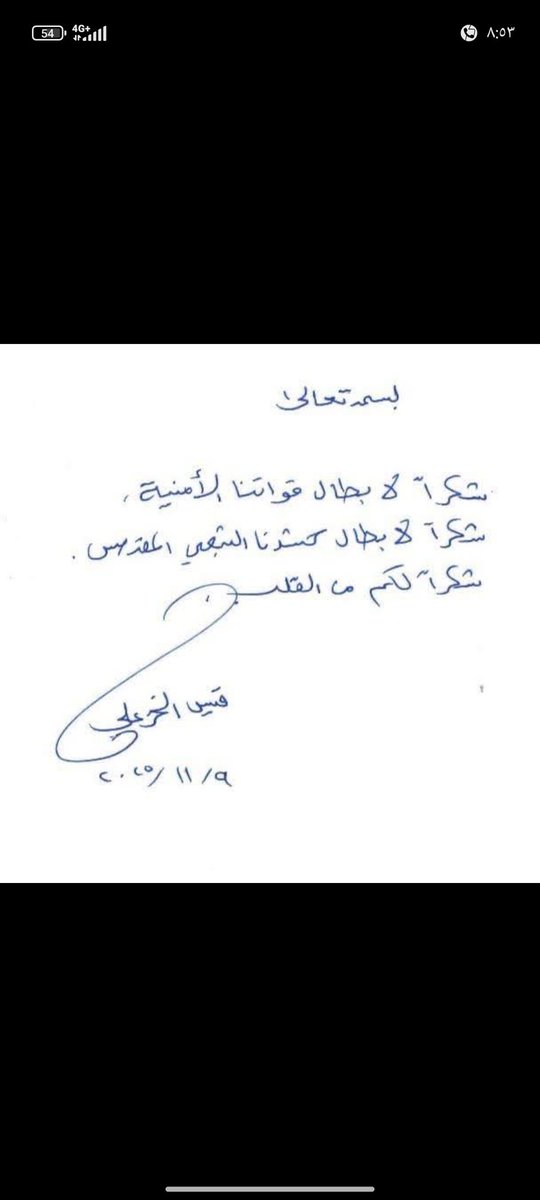 54 4G+ ٨:٥٣
بسمه تعالى
شكراً لأبطال قواتنا الأمنية ،
شكراً لأبطال حشدنا الشعبي المقدس .
شكراً لكم من القلب .
قيس الخزعلي
٢٠٢٥/١١/٩